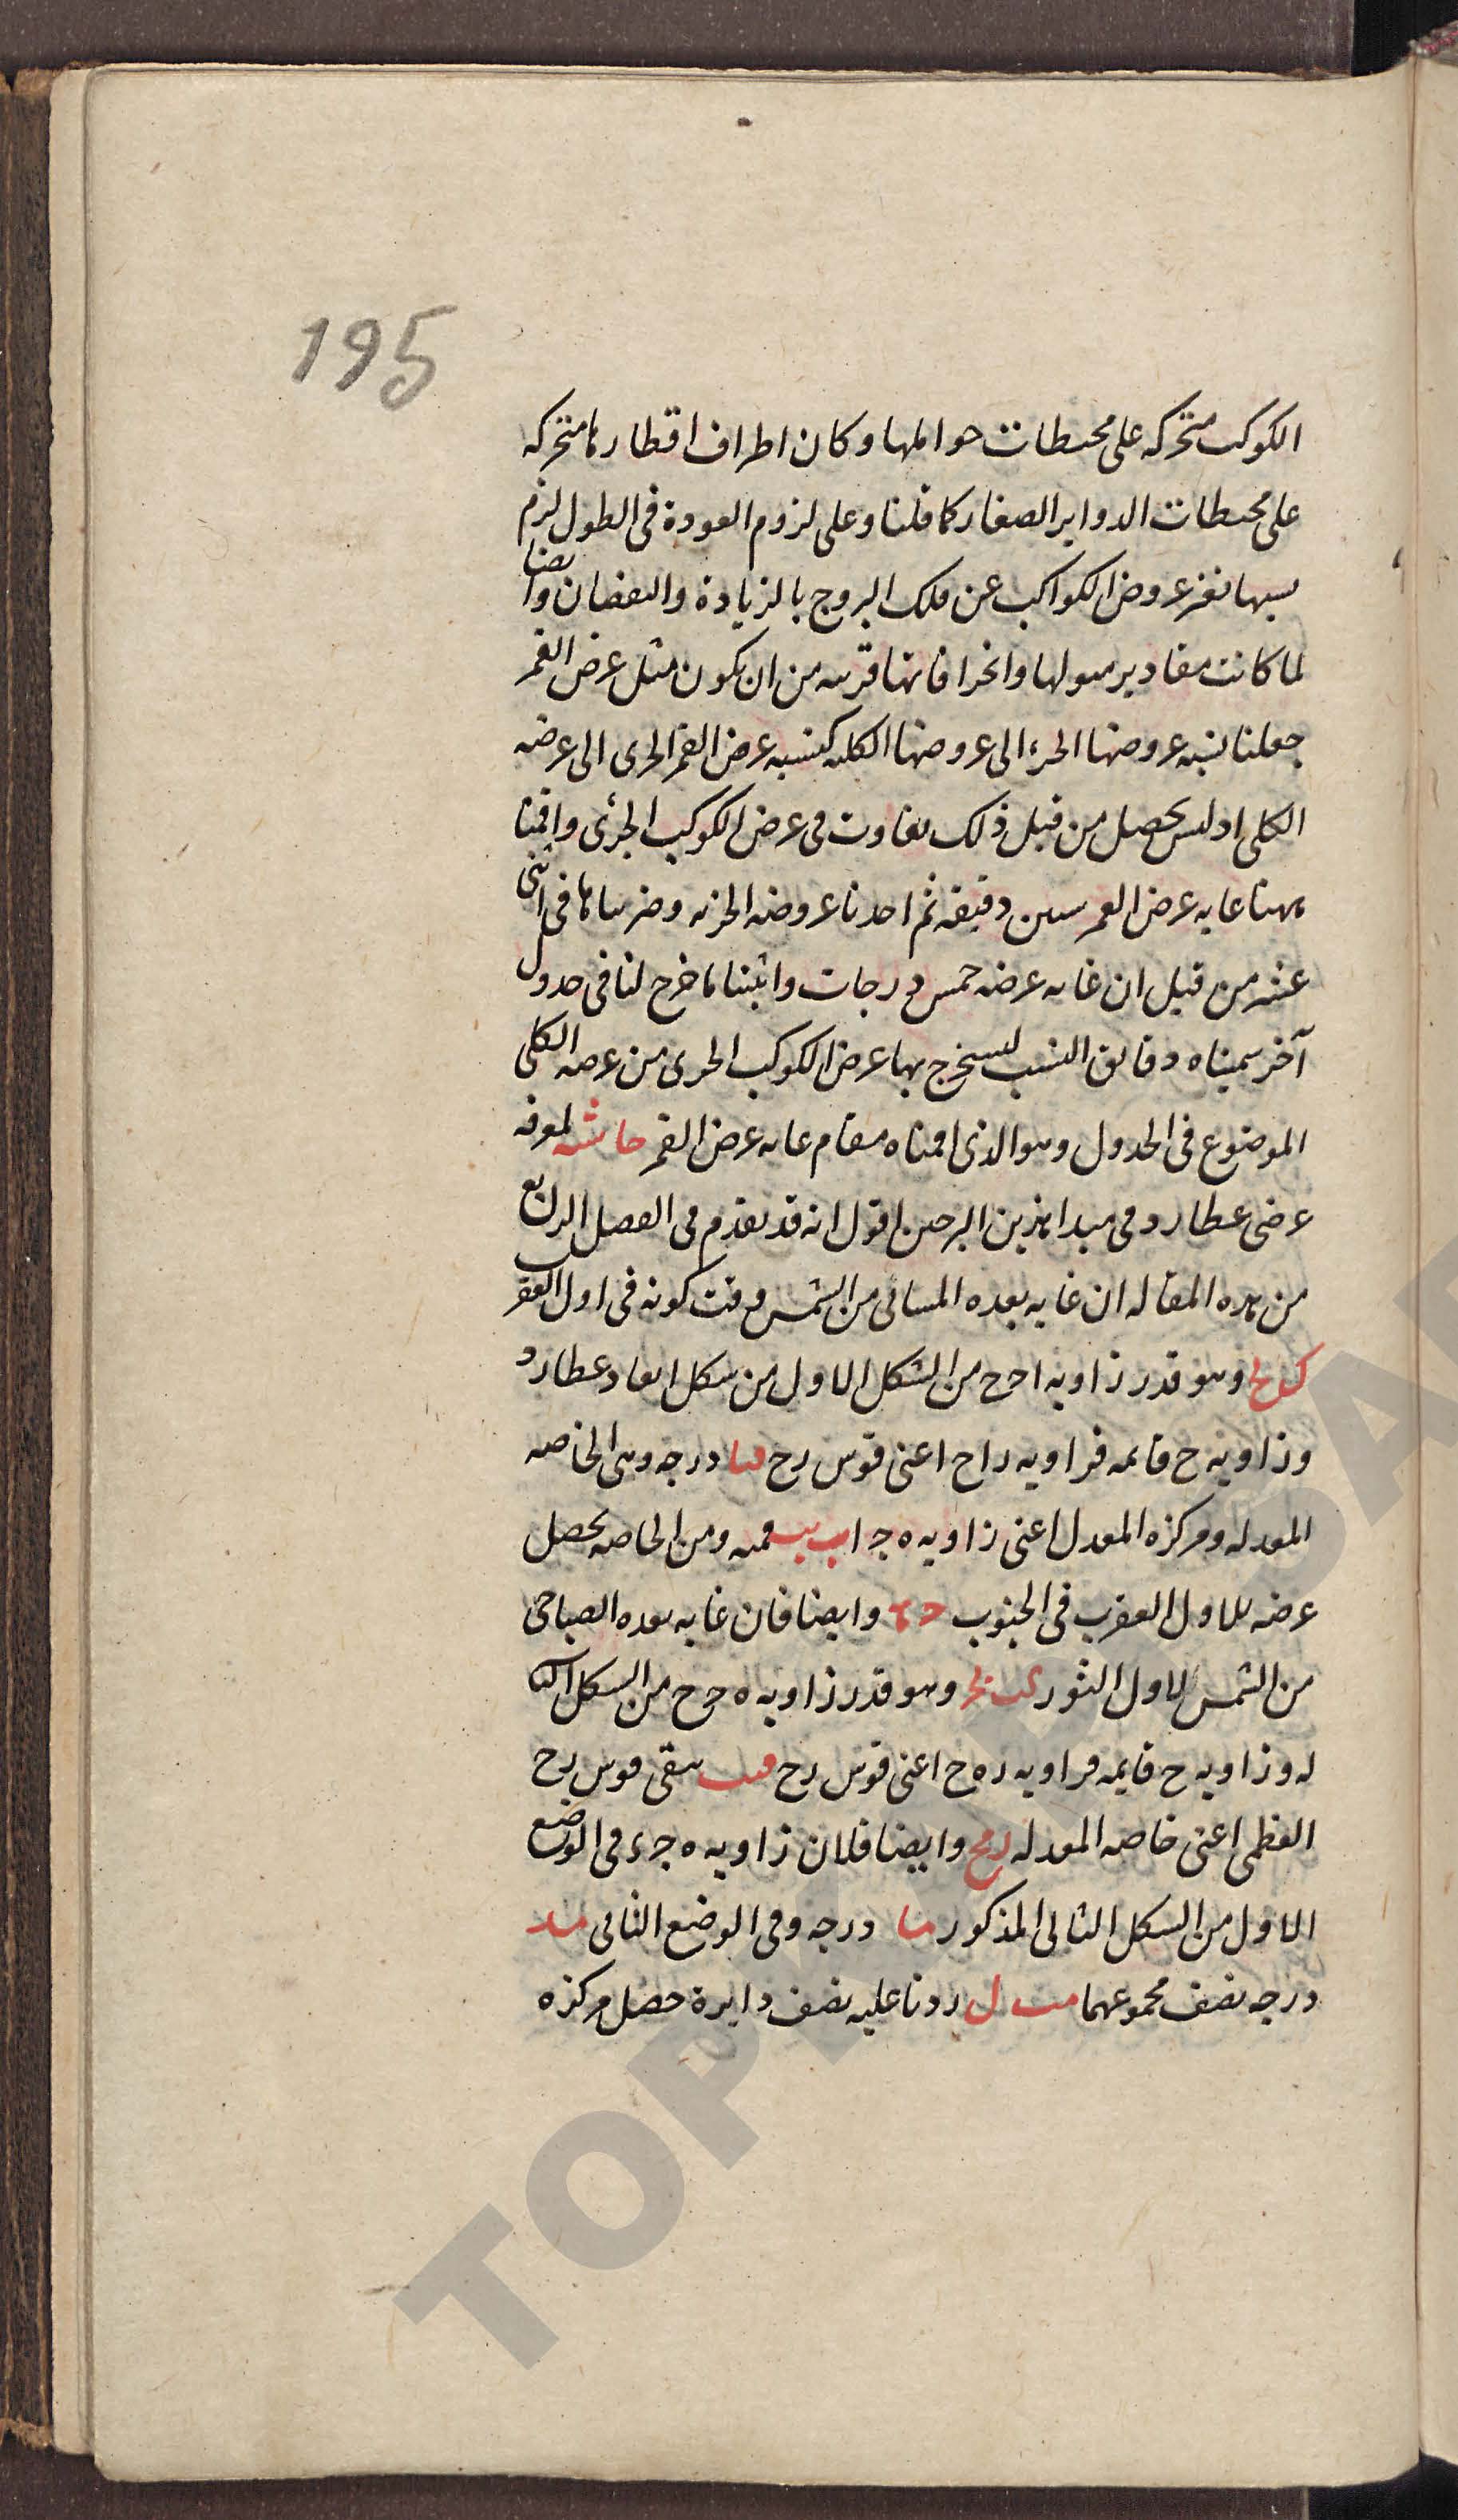 195
الكوكب متحركه على محيطات حواملها وكان اطراف اقطارها متحركه
على محيطات الدواير الصغار كما قلنا وعلى لزوم العودة فى الطول لزم
بسبها تغير عروض الكواكب عن فلك البروج بالزيادة والنقصان وايضا
لما كانت مقادير ميولها وانحرافاتها قريبه من ان يكون مثل عرض القمر
جعلنا نسبه عروضها الجزء الى عروضها الكليه كنسبه عرض القمر الجزى الى عرضه
الكلى اذ ليس يحصل من قبل ذلك تفاوت فى عرض الكوكب الجزئى واقمنا
ههنا غايه عرض القمر ستين دقيقه ثم اخذنا عروضه الجزيه وضربناها فى اثنى
عشر من قبل ان غايه عرضه خمس درجات واثبتنا ما خرج لنا فى جدول
آخر سميناه دقايق النسب ليستخرج بها عرض الكوكب الجزى من عرضه الكلى
الموضوع فى الجدول وهو الذى اقمناه مقام غايه عرض القمر حاشيه لمعرفه
عرضى عطارد فى مبدا هذين البرجين اقول انه قد تقدم فى الفصل الرابع
من هذه المقاله ان غايه بعده المسائى من الشمس وقت كونه فى اول العقرب
وهو قدر زاويه اح ح من الشكل الاول من شكل ابعاد عطارد
وزاويه ح قايمه فزاويه راح اعنى قوس رح درجه وهى الخاصه
المعدله ومركزه المعدل اعنى زاويه ه ج ا ومن الخاصه يحصل
عرضه للاول العقرب فى الجنوب وايضا فان غايه بعده الصباحى
من الشمس لاول الثور وهو قدر زاويه ه ح ح من الشكل الثا
له وزاويه ح قايمه فزاويه ره ح اعنى قوس رح يبقى قوس رح
العظمى اعنى خاصه المعدله وايضا فلان زاويه ه ج ء فى الوضع
الاول من الشكل الثالى المذكور درجه وفى الوضع الثانى
درجه نصف مجموعهما ل زدنا عليه نصف دايرة حصل مركزه